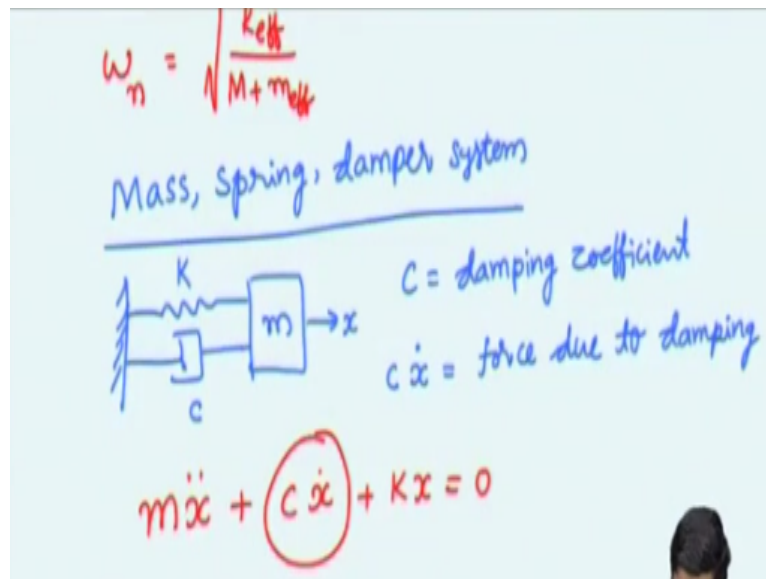 ωn = √(Keff / M + meff)
Mass, spring, damper system
K
m → x
C
C = damping coefficient
cẋ = force due to damping
mẍ + cẋ + Kx = 0